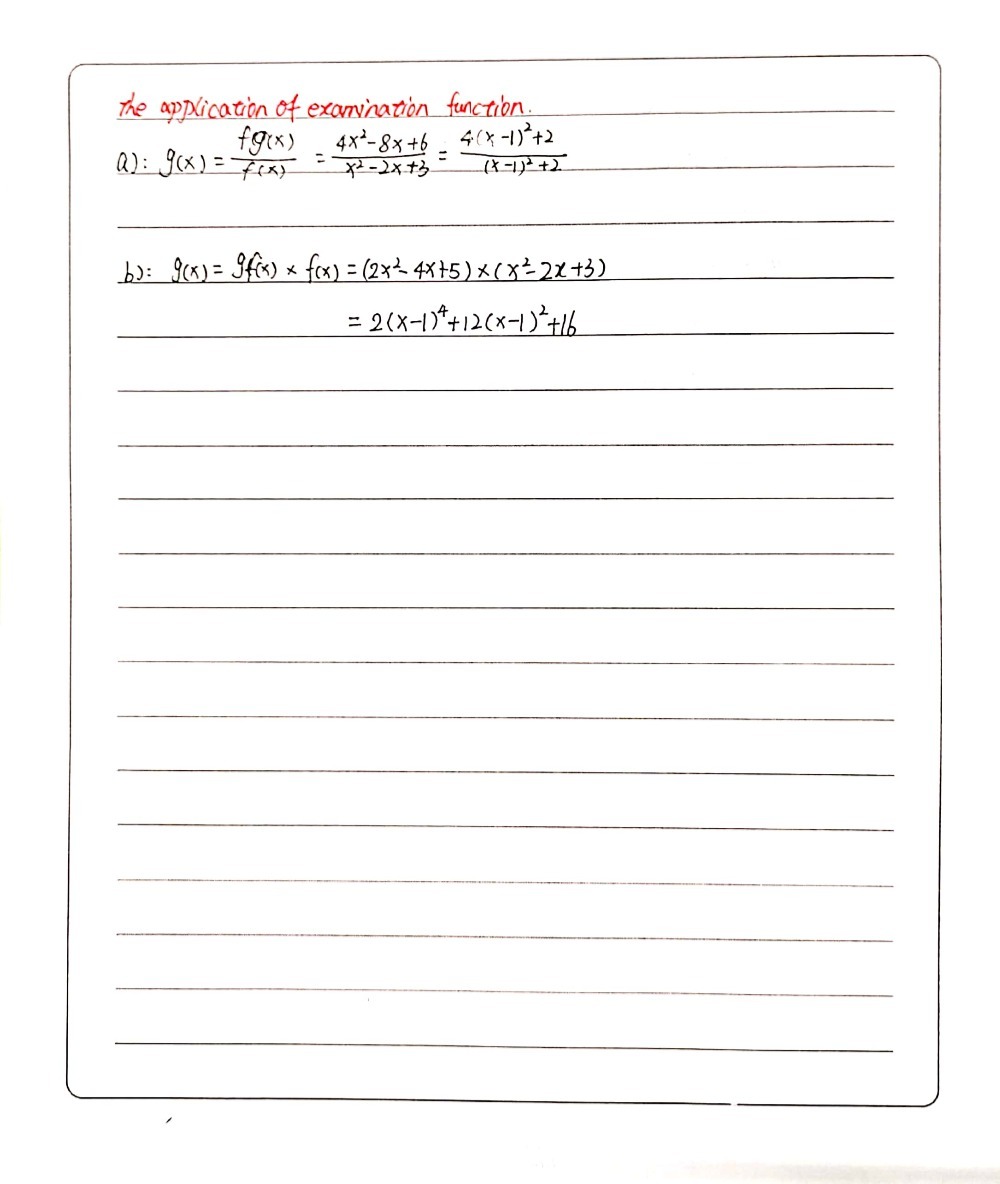 The application of examination function.
a): g(x) = fg(x)/f(x) = 4x²-8x+6/x²-2x+3 = 4(x-1)²+2/(x-1)²+2
b): g(x) = gf(x) × f(x) = (2x²-4x+5)×(x²-2x+3)
= 2(x-1)⁴+12(x-1)²+16